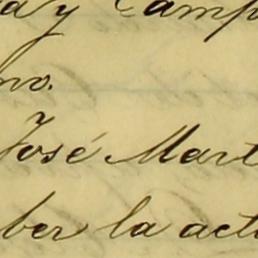 a y Camp
no.
José Mart
ber la act